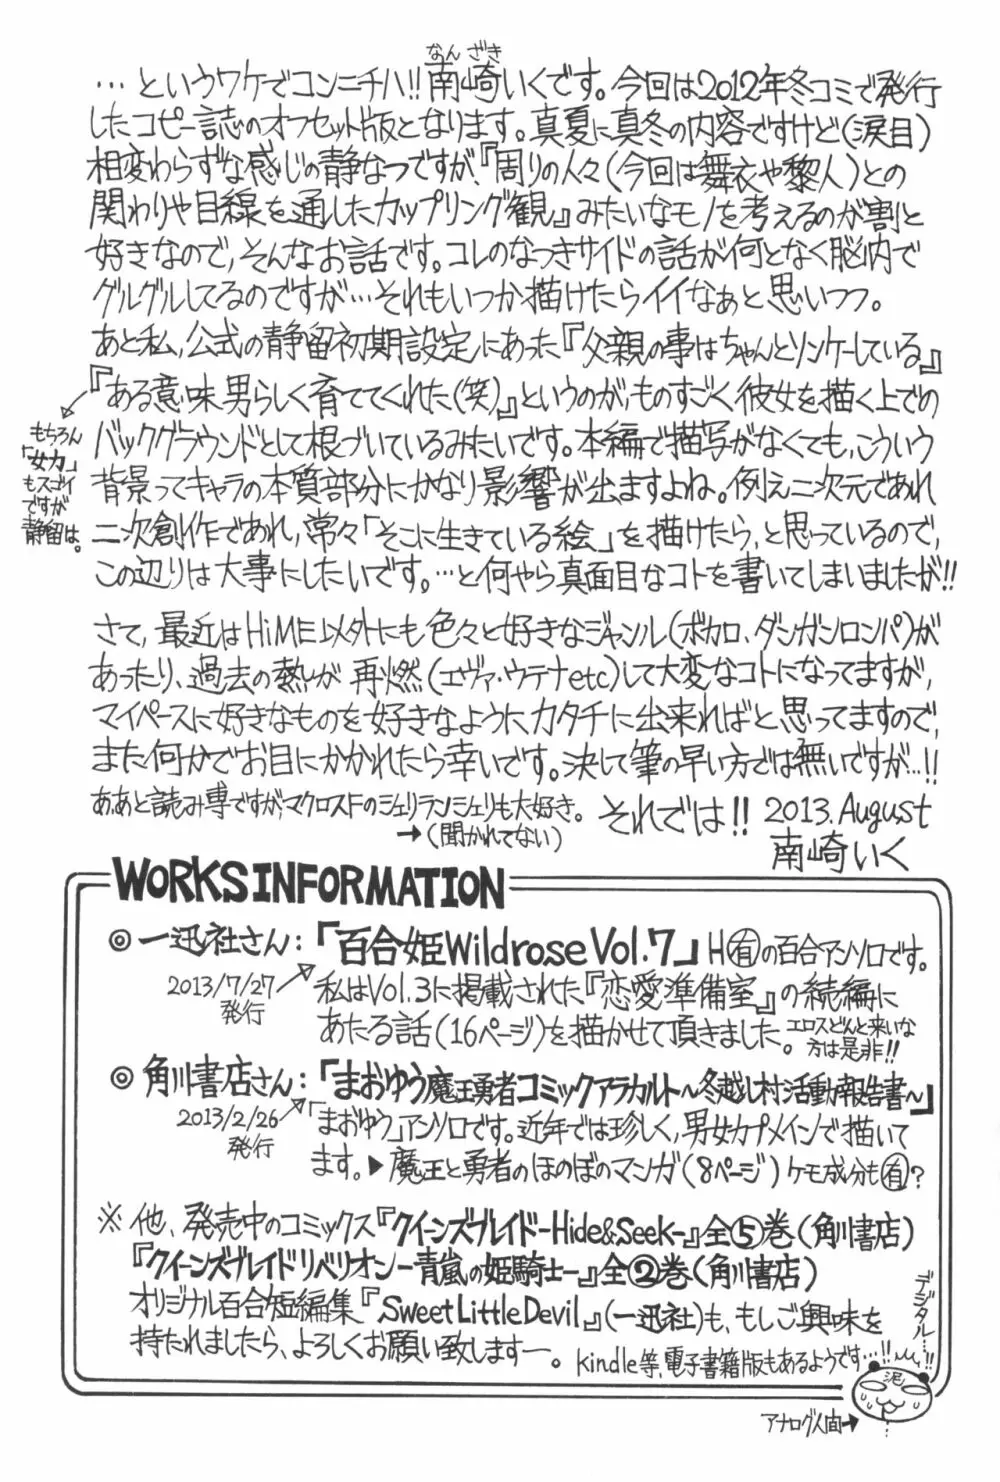 なんざき
…というワケでコンニチハ!!南崎いくです。今回は2012年冬コミで発行
したコピー誌のオフセット版となります。真夏に真冬の内容ですけど(涙目)
相変わらずな感じの静なつですが、『周りの人々(今回は舞衣や黎人)との
関わりや目線を通したカップリング観』みたいなモノを考えるのが割と
好きなので、そんなお話です。コレのなつきサイドの話が何となく脳内で
グルグルしてるのですが…それもいつか描けたらイイなぁと思いつつ。
あと私、公式の静留初期設定にあった『父親の事はちゃんとソンケーしている』
『ある意味男らしく育ててくれた(笑)』というのが、ものすごく彼女を描く上での
バックグラウンドとして根づいているみたいです。本編で描写がなくても、こういう
背景ってキャラの本質部分にかなり影響が出ますよね。例え二次元であれ
二次創作であれ、常々「そこに生きている絵」を描けたら、と思っているので、
この辺りは大事にしたいです。…と何やら真面目なコトを書いてしまいましたが!!
もちろん
「女力」
もスゴイ
ですが
静留は。
さて、最近はHiME以外にも色々と好きなジャンル(ボカロ、ダンガンロンパ)が
あったり、過去の熱が再燃(エヴァ・ウテナetc)して大変なコトになってますが、
マイペースに好きなものを好きなようにカタチに出来ればと思ってますので、
また何かでお目にかかれたら幸いです。決して筆の早い方では無いですが…!!
ああと読み専ですがマクロスFのシェリランシェリも大好き。
→(聞かれてない)
それでは!! 2013.August
南崎いく
WORKS INFORMATION
◎一迅社さん:「百合姫Wildrose Vol.7」H㊒の百合アンソロです。
2013/7/27
発行
私はVol.3に掲載された『恋愛準備室』の続編に
あたる話(16ページ)を描かせて頂きました。エロスどんと来いな
方は是非!!
◎角川書店さん:「まおゆう魔王勇者コミックアラカルト~冬越し村活動報告書~」
2013/2/26
発行
「まおゆう」アンソロです。近年では珍しく、男女カプメインで描いて
ます。▶魔王と勇者のほのぼのマンガ(8ページ)ケモ成分も㊒?
※他、発売中のコミックス『クイーンズブレイドーHide&Seekー』全⑤巻(角川書店)
『クイーンズブレイドリベリオンー青嵐の姫騎士ー』全②巻(角川書店)
オリジナル百合短編集『Sweet Little Devil』(一迅社)も、もしご興味を
持たれましたら、よろしくお願い致しますー。
kindle等、電子書籍版もあるようです…!!
デジタル…!!
泥
アナログ人間→